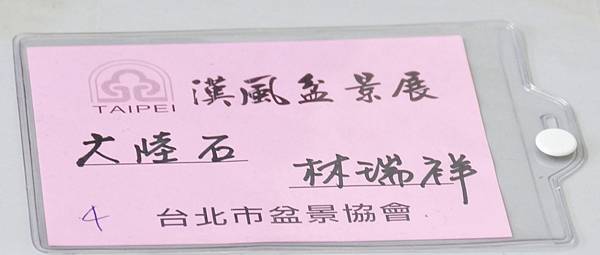 漢風盆景展
TAIPEI
大陸石
林瑞祥
4
台北市盆景協會